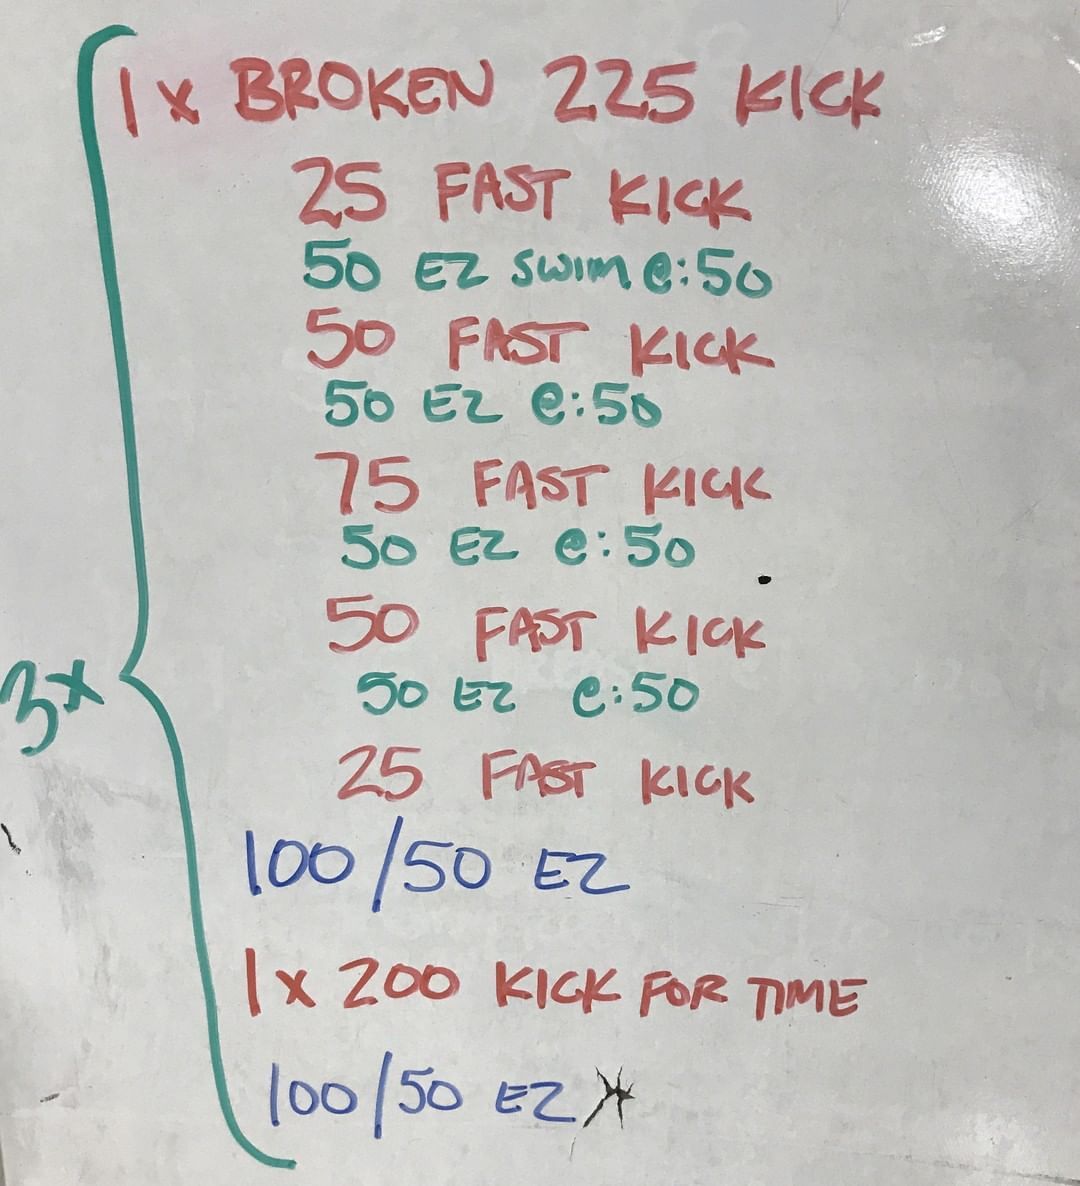 1 x BROKEN 225 KICK
25 FAST KICK
50 EZ SWIM @:50
50 FAST KICK
50 EZ @:50
75 FAST KICK
50 EZ @:50
50 FAST KICK
3x
50 EZ @:50
25 FAST KICK
100/50 EZ
1 x 200 KICK FOR TIME
100/50 EZ